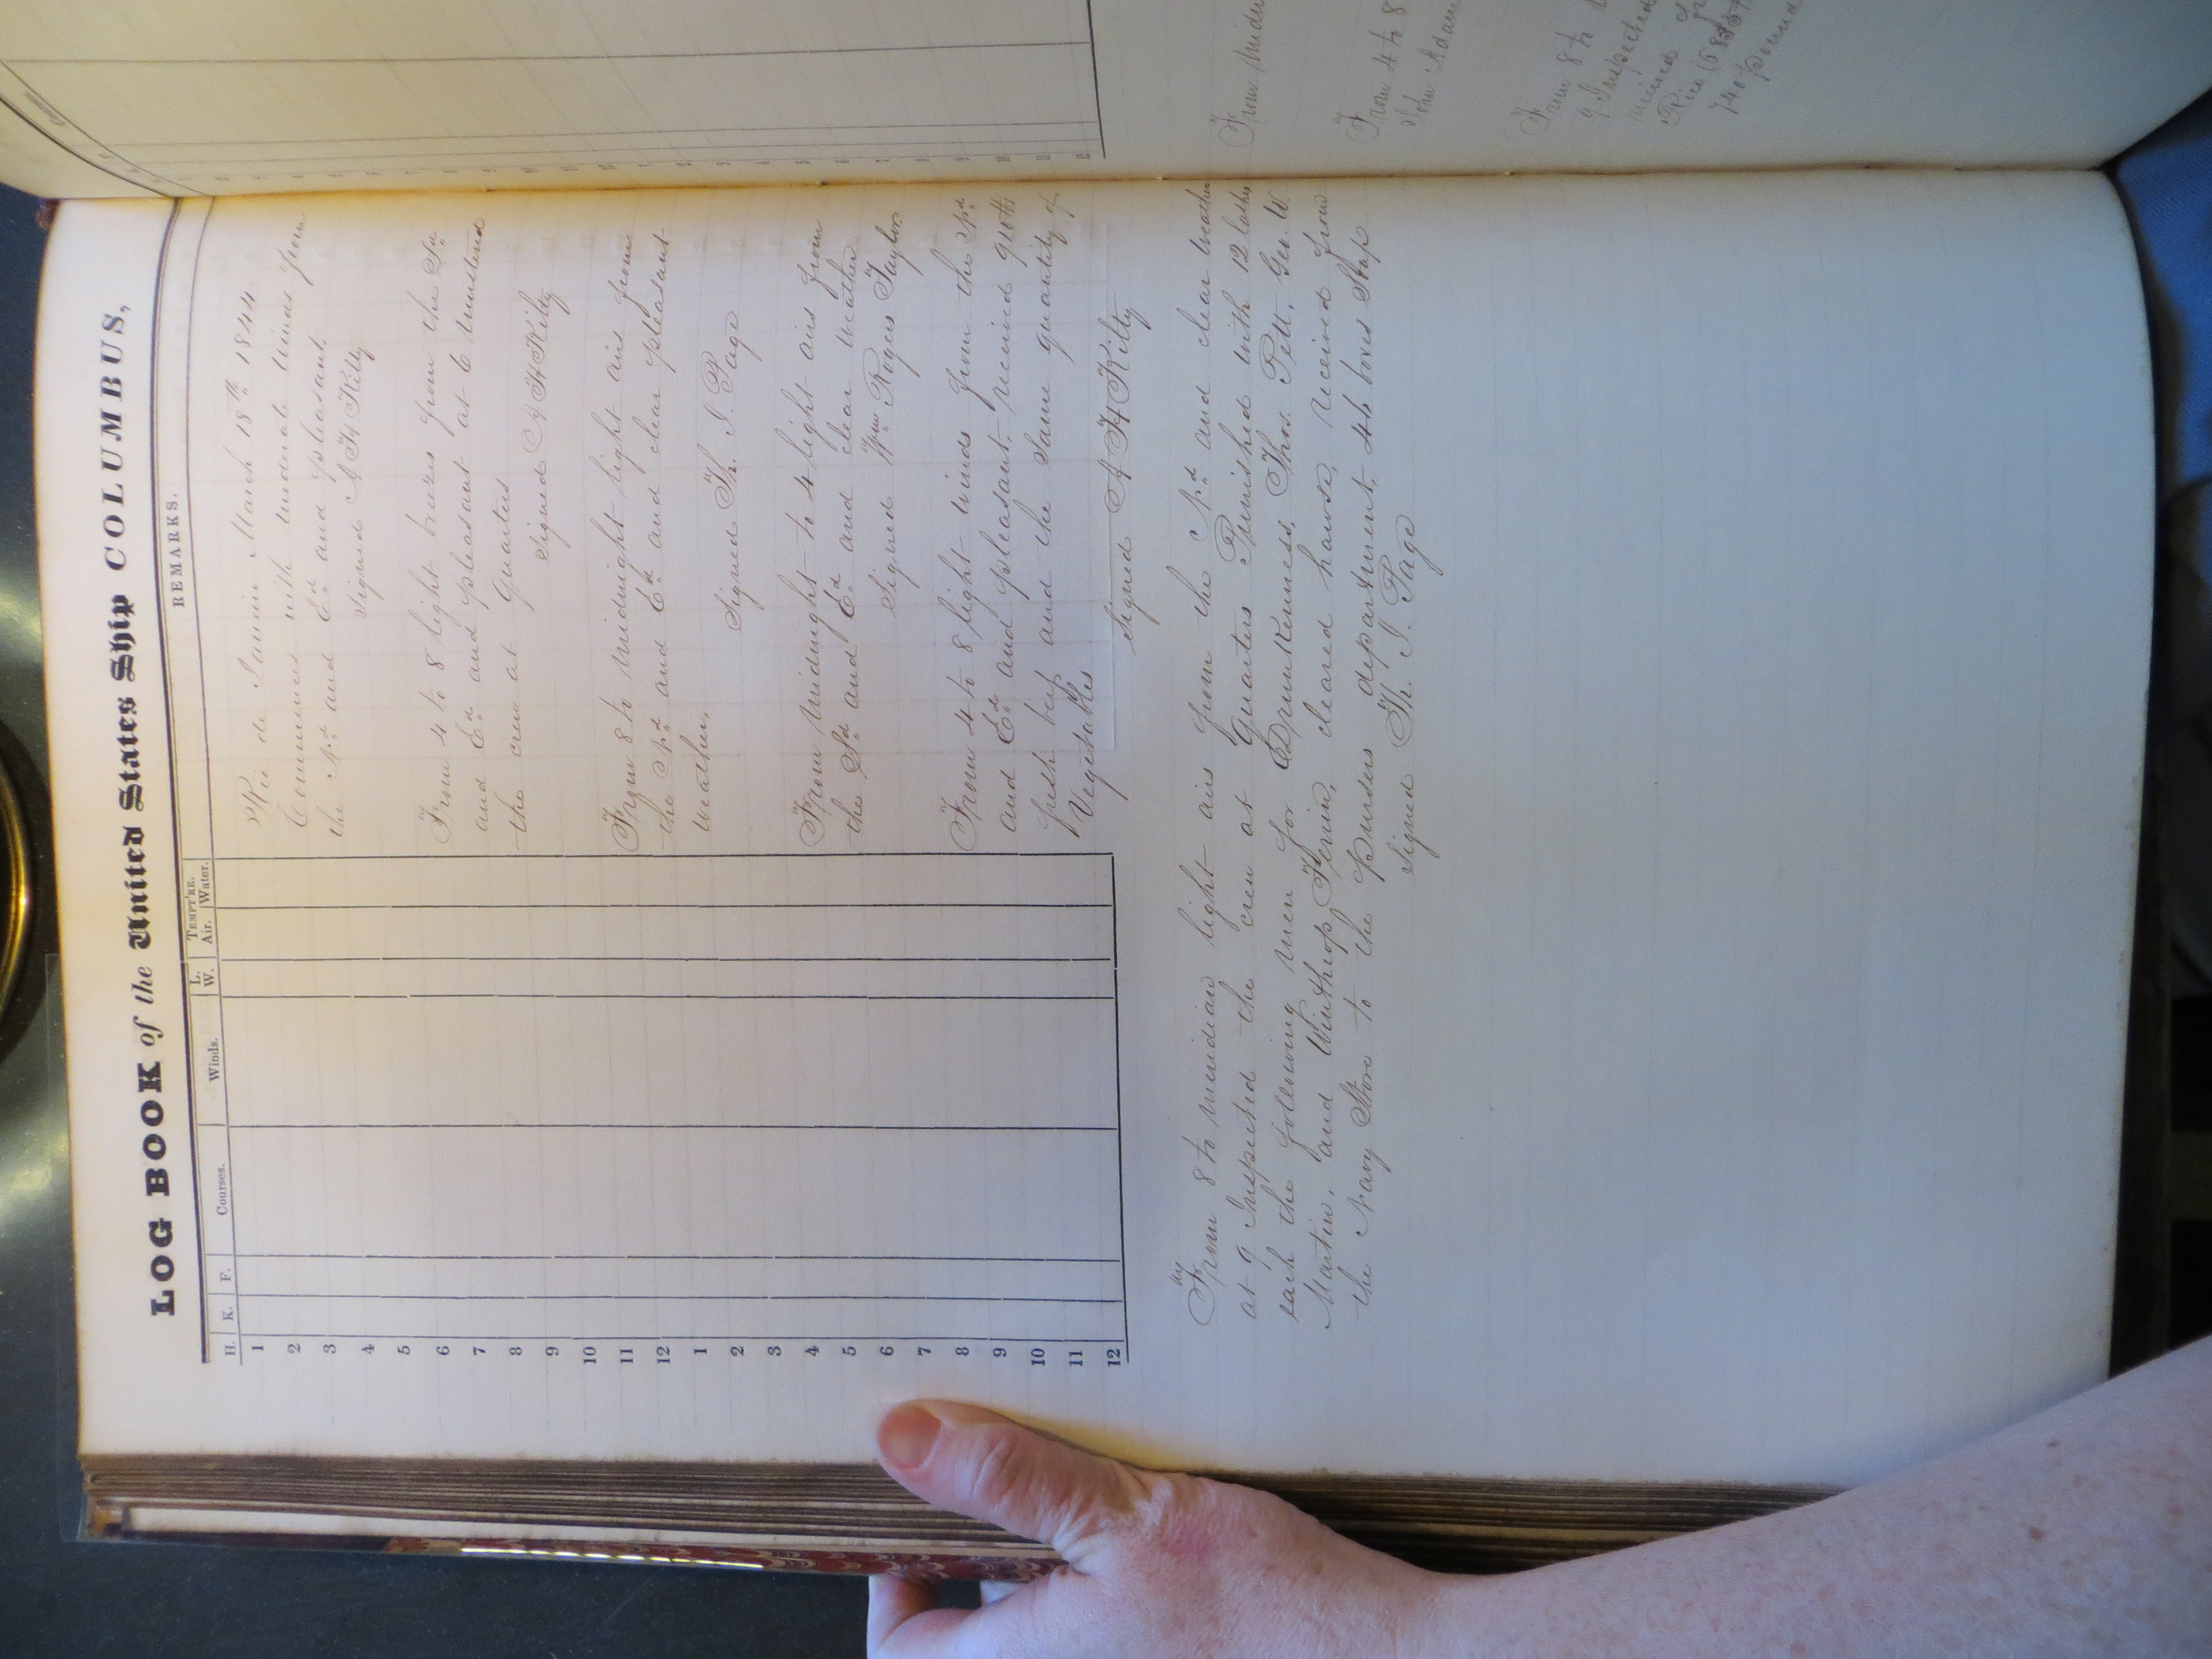 LOG BOOK of the United States Ship COLUMBUS,
H. K. F. Courses. Winds. L. W. TEMPT'RE. Air. Water. REMARKS.
1
2
3
4
5
6
7
8
9
10
11
12
1
2
3
4
5
6
7
8
9
10
11
12
Rio de Janeiro March 18th 1844
Commences with moderate winds from
the Nd and Ed and pleasant.
Signed A H Kilty
From 4 to 8 light breezes from the Sd
and Ed and pleasant at 6 mustered
the crew at quarters
Signed A H Kilty
From 8 to midnight light airs from
the Nd and Ed and clear pleasant
weather.
Signed Th. J. Page
From midnight to 4 light airs from
the Sd and Ed and clear weather
Signed Wm Rogers Taylor
From 4 to 8 light winds from the Nd
and Ed and pleasant. received 910 lbs
fresh beef and the same quantity of
Vegetables
Signed A H Kilty
From 8 to meridian light airs from the Nd and clear weather
at 9 Inspected the crew at quarters Punished with 12 lashes
each the following men for Drunkenness, Thos. Pett, Geo. W.
Martin, and Winthrop Perrin, cleared hawse, received from
the Navy Store to the Pursers department 4 boxes Soap
Signed Th. J. Page
From midni
From 4 to 8
John Adam
From 8 to
9 Inspected
Rice
740 pounds